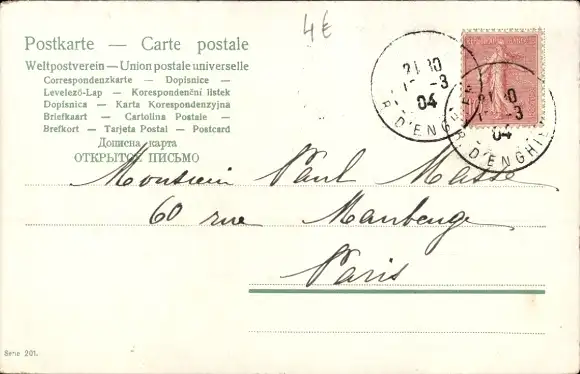 4€
Postkarte — Carte postale
Weltpostverein — Union postale universelle
Correspondenzkarte — Dopisnice —
Levelező-Lap — Korespondenční lístek
Dopisnica — Karta Korespondenzyjna
Briefkaart — Cartolina Postale —
Brefkort — Tarjeta Postal — Postcard
Дописна карта
ОТКРЫТОЕ ПИСЬМО
04
R. D'ENGHIEN
04
R. D'ENGHIEN
Monsieur Paul Masse
60 rue Maubeuge
Paris
Serie 201.